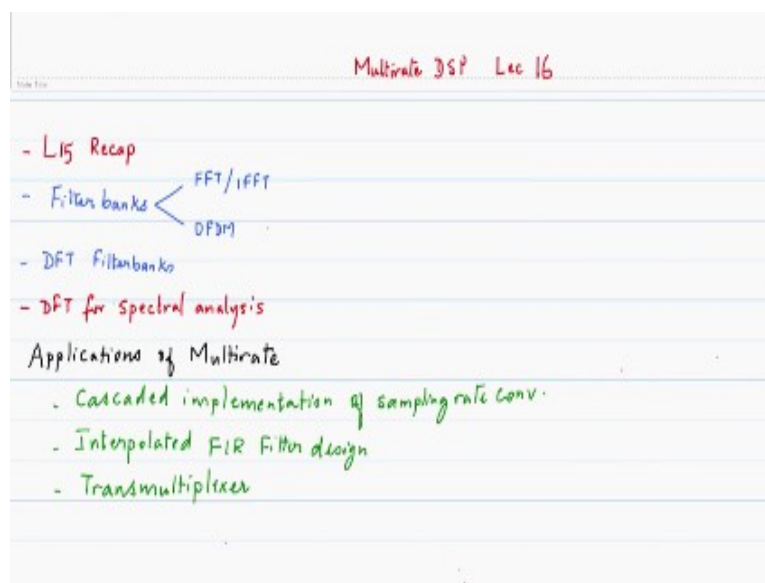 Multirate DSP Lec 16
Note Title
- L15 Recap
- Filter banks < FFT/IFFT
OFDM
- DFT Filterbanks
- DFT for spectral analysis
Applications of Multirate
- Cascaded implementation of sampling rate conv.
- Interpolated FIR Filter design
- Transmultiplexer